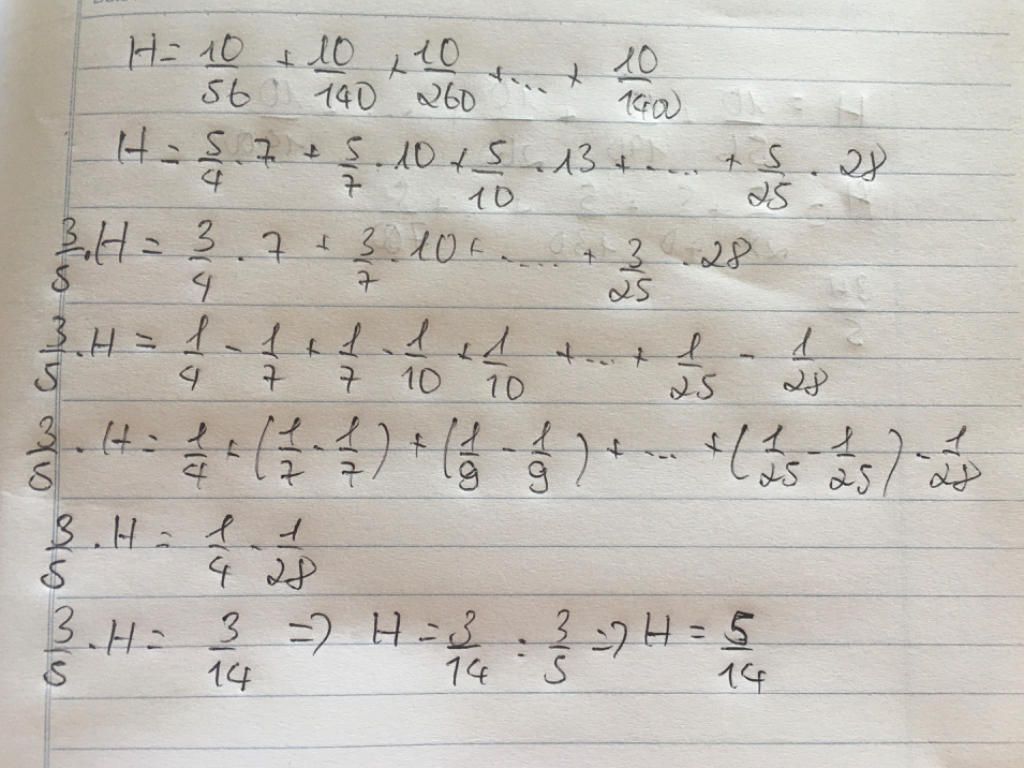 H = 10/56 + 10/140 + 10/260 + ... + 10/1400
H = 5/4 . 7 + 5/7 . 10 + 5/10 . 13 + .... + 5/25 . 28
3/5 . H = 3/4 . 7 + 3/7 . 10 + ..... + 3/25 . 28
3/5 . H = 1/4 - 1/7 + 1/7 - 1/10 + 1/10 + ... + 1/25 - 1/28
3/5 . H = 1/4 + (1/7 - 1/7) + (1/9 - 1/9) + ... + (1/25 - 1/25) - 1/28
3/5 . H = 1/4 - 1/28
3/5 . H = 3/14 => H = 3/14 : 3/5 => H = 5/14